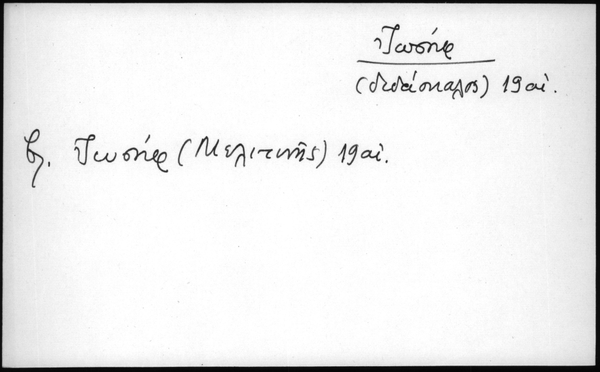 Ἰωσήφ
(διδάσκαλος) 19 αἰ.
βλ. Ἰωσήφ (Μελιτινῆς) 19 αἰ.